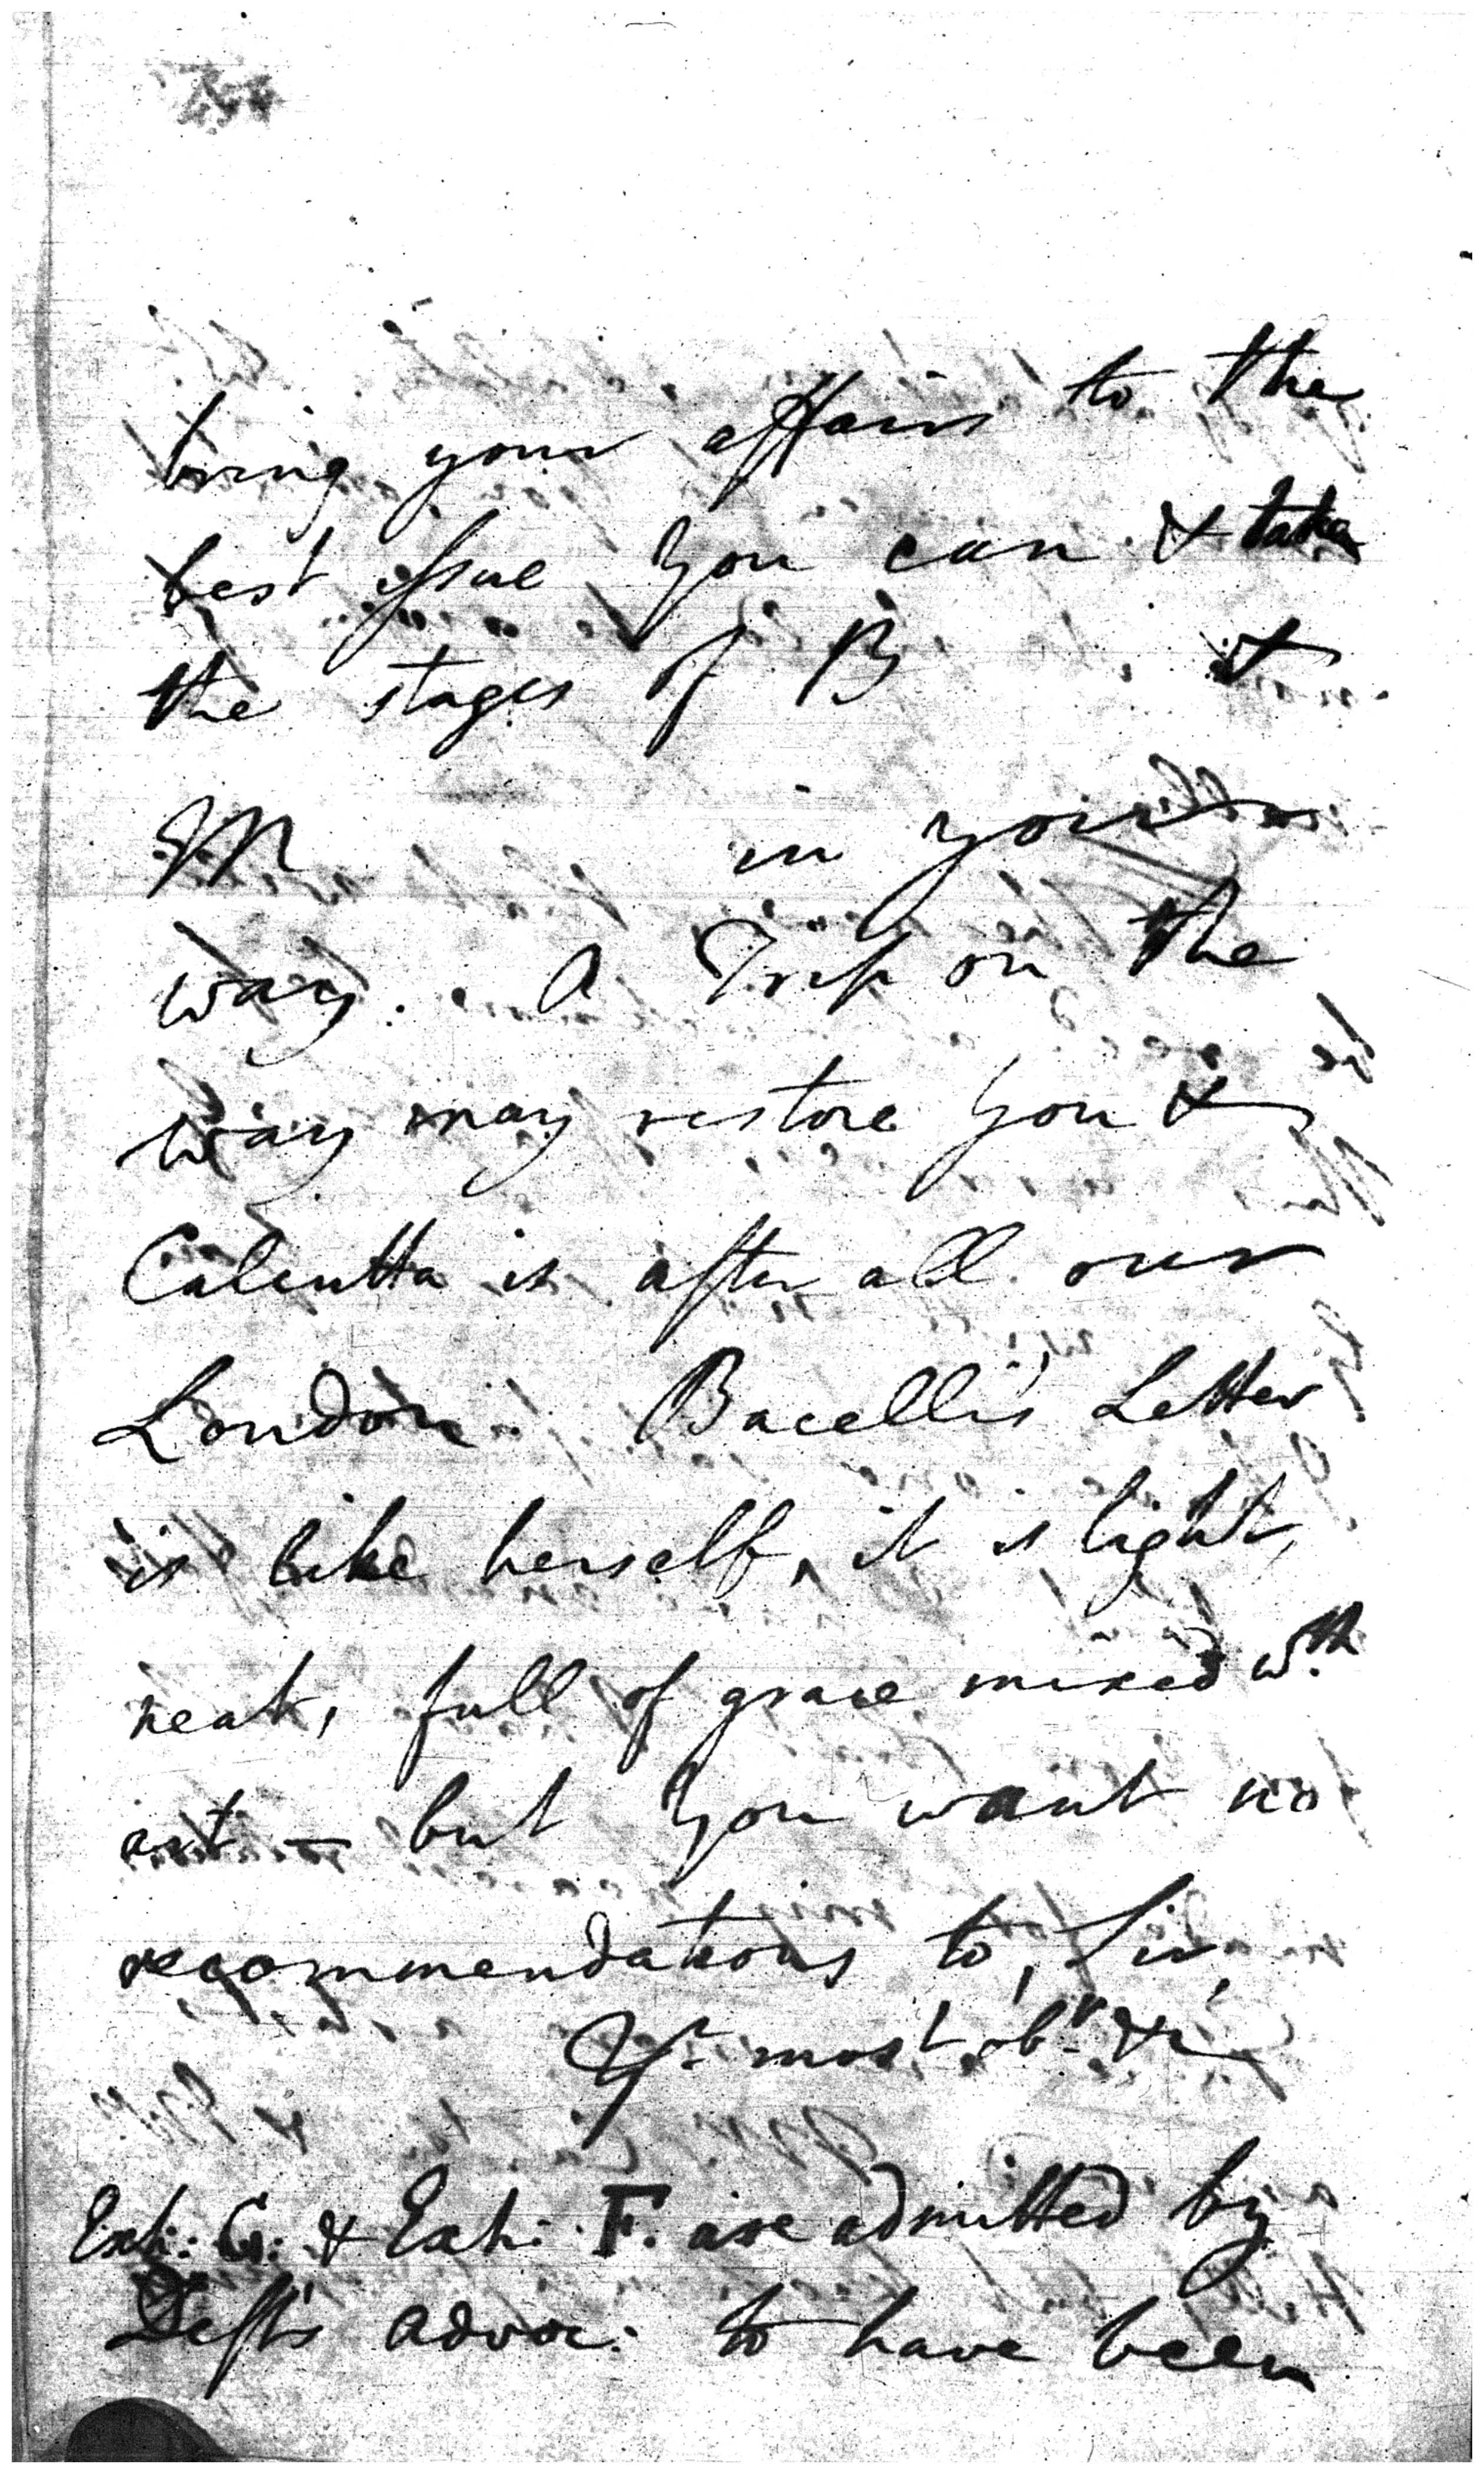 bring your affairs to the
best issue you can & take
the stages of B &
M in your
way. A Trip on the
way may restore you &
Calcutta is after all our
London. Bacelli's Letter
is like herself, it is light,
neat, full of grace mixed wth
art — but you want no
recommendations to, Sir,
Yr most obt &c
Exh: G: & Exh: F. are admitted by
Deft's advoc: to have been